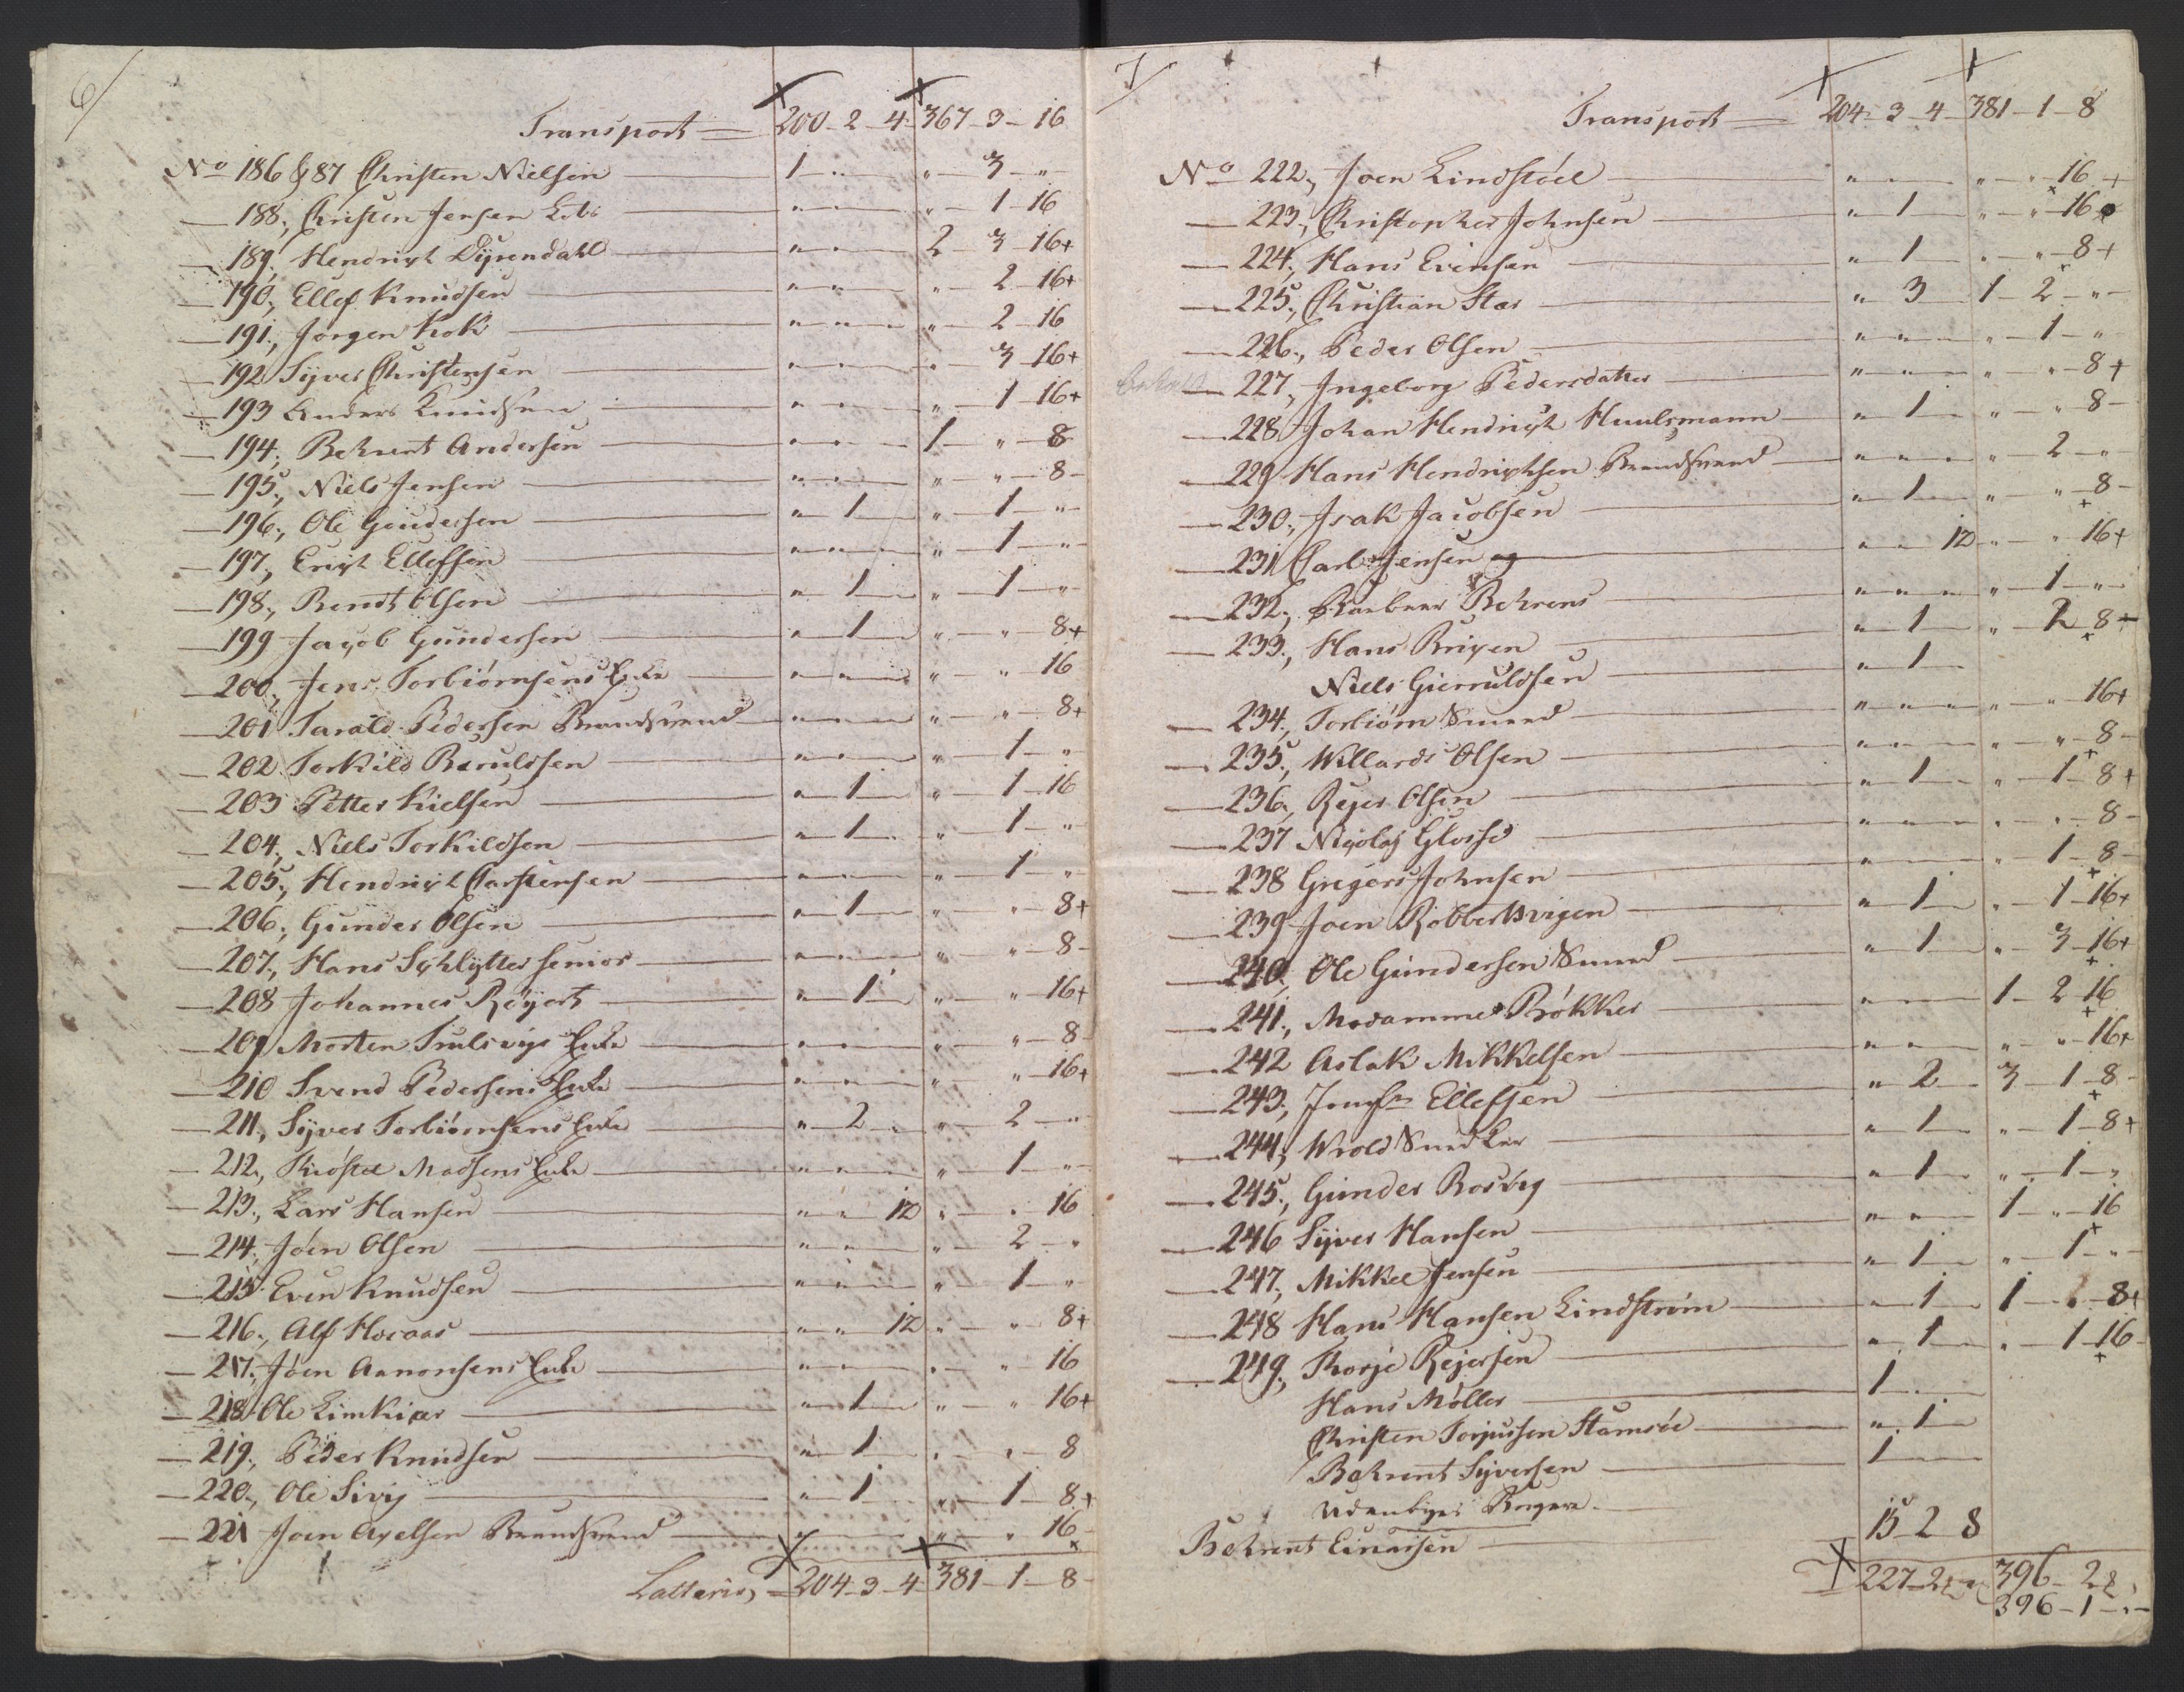 6/
Transport = 200-2-4 367-3-16
No 186 & 87 Christen Nielsen 1 - " - " - 3 - "
188, Christen Jensen " - " - " " - 1 - 16
189, Hendrich Dyvendahl " - " - " 2 - 3 - 16+
190, Ellef Knudsen " - " - " " - 2 - 16+
191, Jørgen Kok " - " - " " - 2 - 16
192 Syver Christensen " - " - " " - 3 - 16+
193 Anders Knudsen " - " - " " - 1 - 16+
194, Behrent Andersen " - " - " 1 - " - 8
195, Niels Jensen " - " - " " - " - 8
196, Ole Gundersen " - 1 - " - 1 - "
197, Erich Ellefsen " - " - " " - 1 - "
198, Bendt Olsen " - 1 - " - 1 - "
199 Jacob Gundersen " - 1 - " - " - 8+
200, Jens Torbiørnsens Enke " - " - " " - " - 16
201 Tarald Pedersen Brandsvend " - " - " " - " - 8+
202 Torkild Barulsen " - " - " - 1 - "
203 Petter Kielsen " - 1 - " - 1 - 16
204, Niels Torkildsen " - 1 - " - 1 - "
205, Hendrich Carstensen " - " - " - 1 - "
206, Gunder Olsen " - 1 - " - " - 8+
207, Hans Schlytter senior " - " - " - " - 8
208 Johannes Røyert " - 1 - " - " - 16+
209 Morten Trulsvigs Enke " - " - " - " - 8
210 Svend Pedersens Enke " - " - " - " - 16+
211, Syver Torbiørnsens Enke " - 2 - " - 2 - "
212, Kiøstel Madsens Enke " - " - " - 1 - "
213, Lars Hansen " - " - 12 " - " - 16
214, Joen Olsen " - " - " - 2 - "
215 Even Knudsen " - " - " " - 1 - "
216, Alf Horaas " - " - 12 " - " - 8+
217, Joen Aanonsens Enke " - " - " - " - 16
218 Ole Limkiær " - 1 - " - " - 16+
219, Peder Knudsen " - 1 - " - " - 8
220, Ole Sivig " - 1 - " - 1 - 8+
221 Joen Axelsen Brandsvend " - " - " - 16
Latteris = 204-3-4 381-1-8
7/
Transport = 204-3-4 381-1-8
No 222, Joen Lindstøel " - " - " - " - 16+
223, Christopher Johnsen " - 1 - " - " - 16
224, Hans Evensen " - 1 - " - " - 8+
225, Christian Stær " - 3 1 - 2 - "
226, Peder Olsen " - " - " - 1 - "
227, Ingeborg Pedersdatter " - " - " - " - 8+
228 Johan Hendrich Huulsmann " - 1 - " - " - 8
229 Hans Hendrichsen Brandsvend " - " - " - 2 - "
230, Isak Jacobsen " - 1 - " - " - 8
231 Carl Jensen " - " - 12 " - " - 16+
232, Behrens " - " - " - 1 - "
233, Hans Brigen " - 1 - " - 2 - 8
Niels Gieruldsen " - 1
234, Torbiørn Smed " - " - " - " - 16+
235, Willards Olsen " - " - " - " - 8
236, Reyer Olsen " - 1 - " - 1 - 8+
237 Nicolaj " - " - " - " - 8
238 Gregers Johnsen " - " - 1 - 8
239 Joen Robbertsvigen " - 1 - " - 1 - 16+
240, Ole Gundersen Smed " - 1 - " - 3 - 16+
241, Madamme Brøkker " - " - 1 - 2 - 16
242 Aslak Mikkelsen " - " - " - " - 16+
243, Jomfr Ellefsen " - 2 - 3 - 1 - 8
244, Wrold Snedker " - 1 - " - 1 - 8+
245, Gunder Rosvig " - 1 - " - 1 - "
246 Syver Hansen " - " - 1 - " - 16
247, Mikkel Jensen " - 1 - " - 1 - "
248 Hans Hansen Lindstrøm " - 1 - 1 - " - 8+
249, Thorje Rejersen " - 1 - " - 1 - 16
Hans Møller 1
Christen Torjussen Stamsøe " - 1
Behrent Syversen 1
Udenbyes Borgere
Behrent Einersen 15 - 2 - 8
227-2 396-2
396-1-"